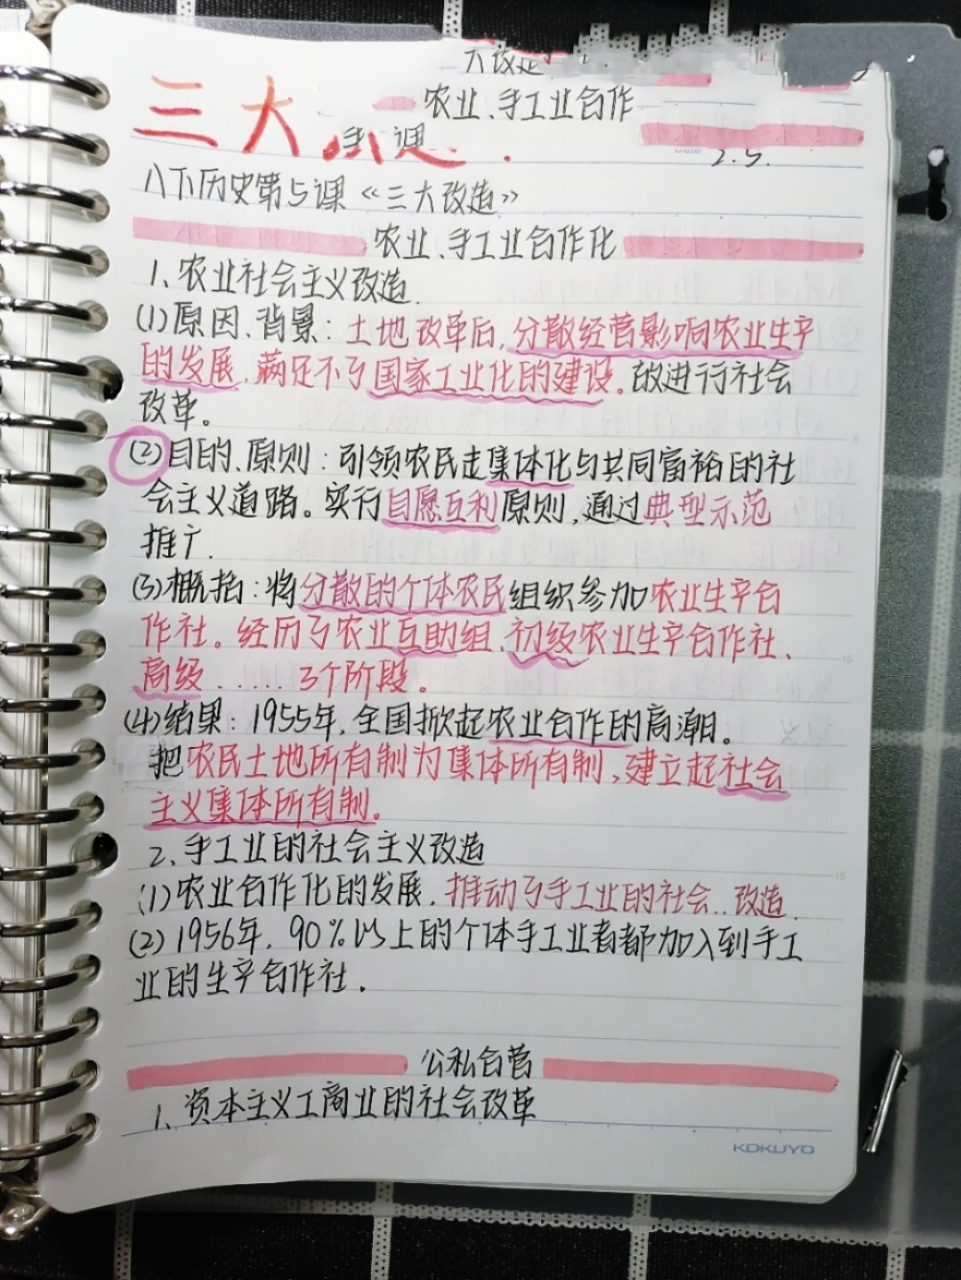 大改造
农业、手工业合作
三大
2.5.
八下历史第5课《三大改造》
农业、手工业合作化
1、农业社会主义改造.
(1)原因、背景：土地改革后，分散经营影响农业生产
的发展，满足不了国家工业化的建设。故进行社会
改革。
(2)目的、原则：引领农民走集体化与共同富裕的社
会主义道路。实行自愿互利原则，通过典型示范
推广.
(3)概括：将分散的个体农民组织参加农业生产合
作社。经历了农业互助组、初级农业生产合作社、
高级......3个阶段。
(4)结果：1955年，全国掀起农业合作的高潮。
把农民土地所有制为集体所有制，建立起社会
主义集体所有制。
2、手工业的社会主义改造
(1)农业合作化的发展，推动了手工业的社会..改造.
(2)1956年，90%以上的个体手工业者都加入到手工
业的生产合作社.
公私合营
1、资本主义工商业的社会改革
KOKUYO